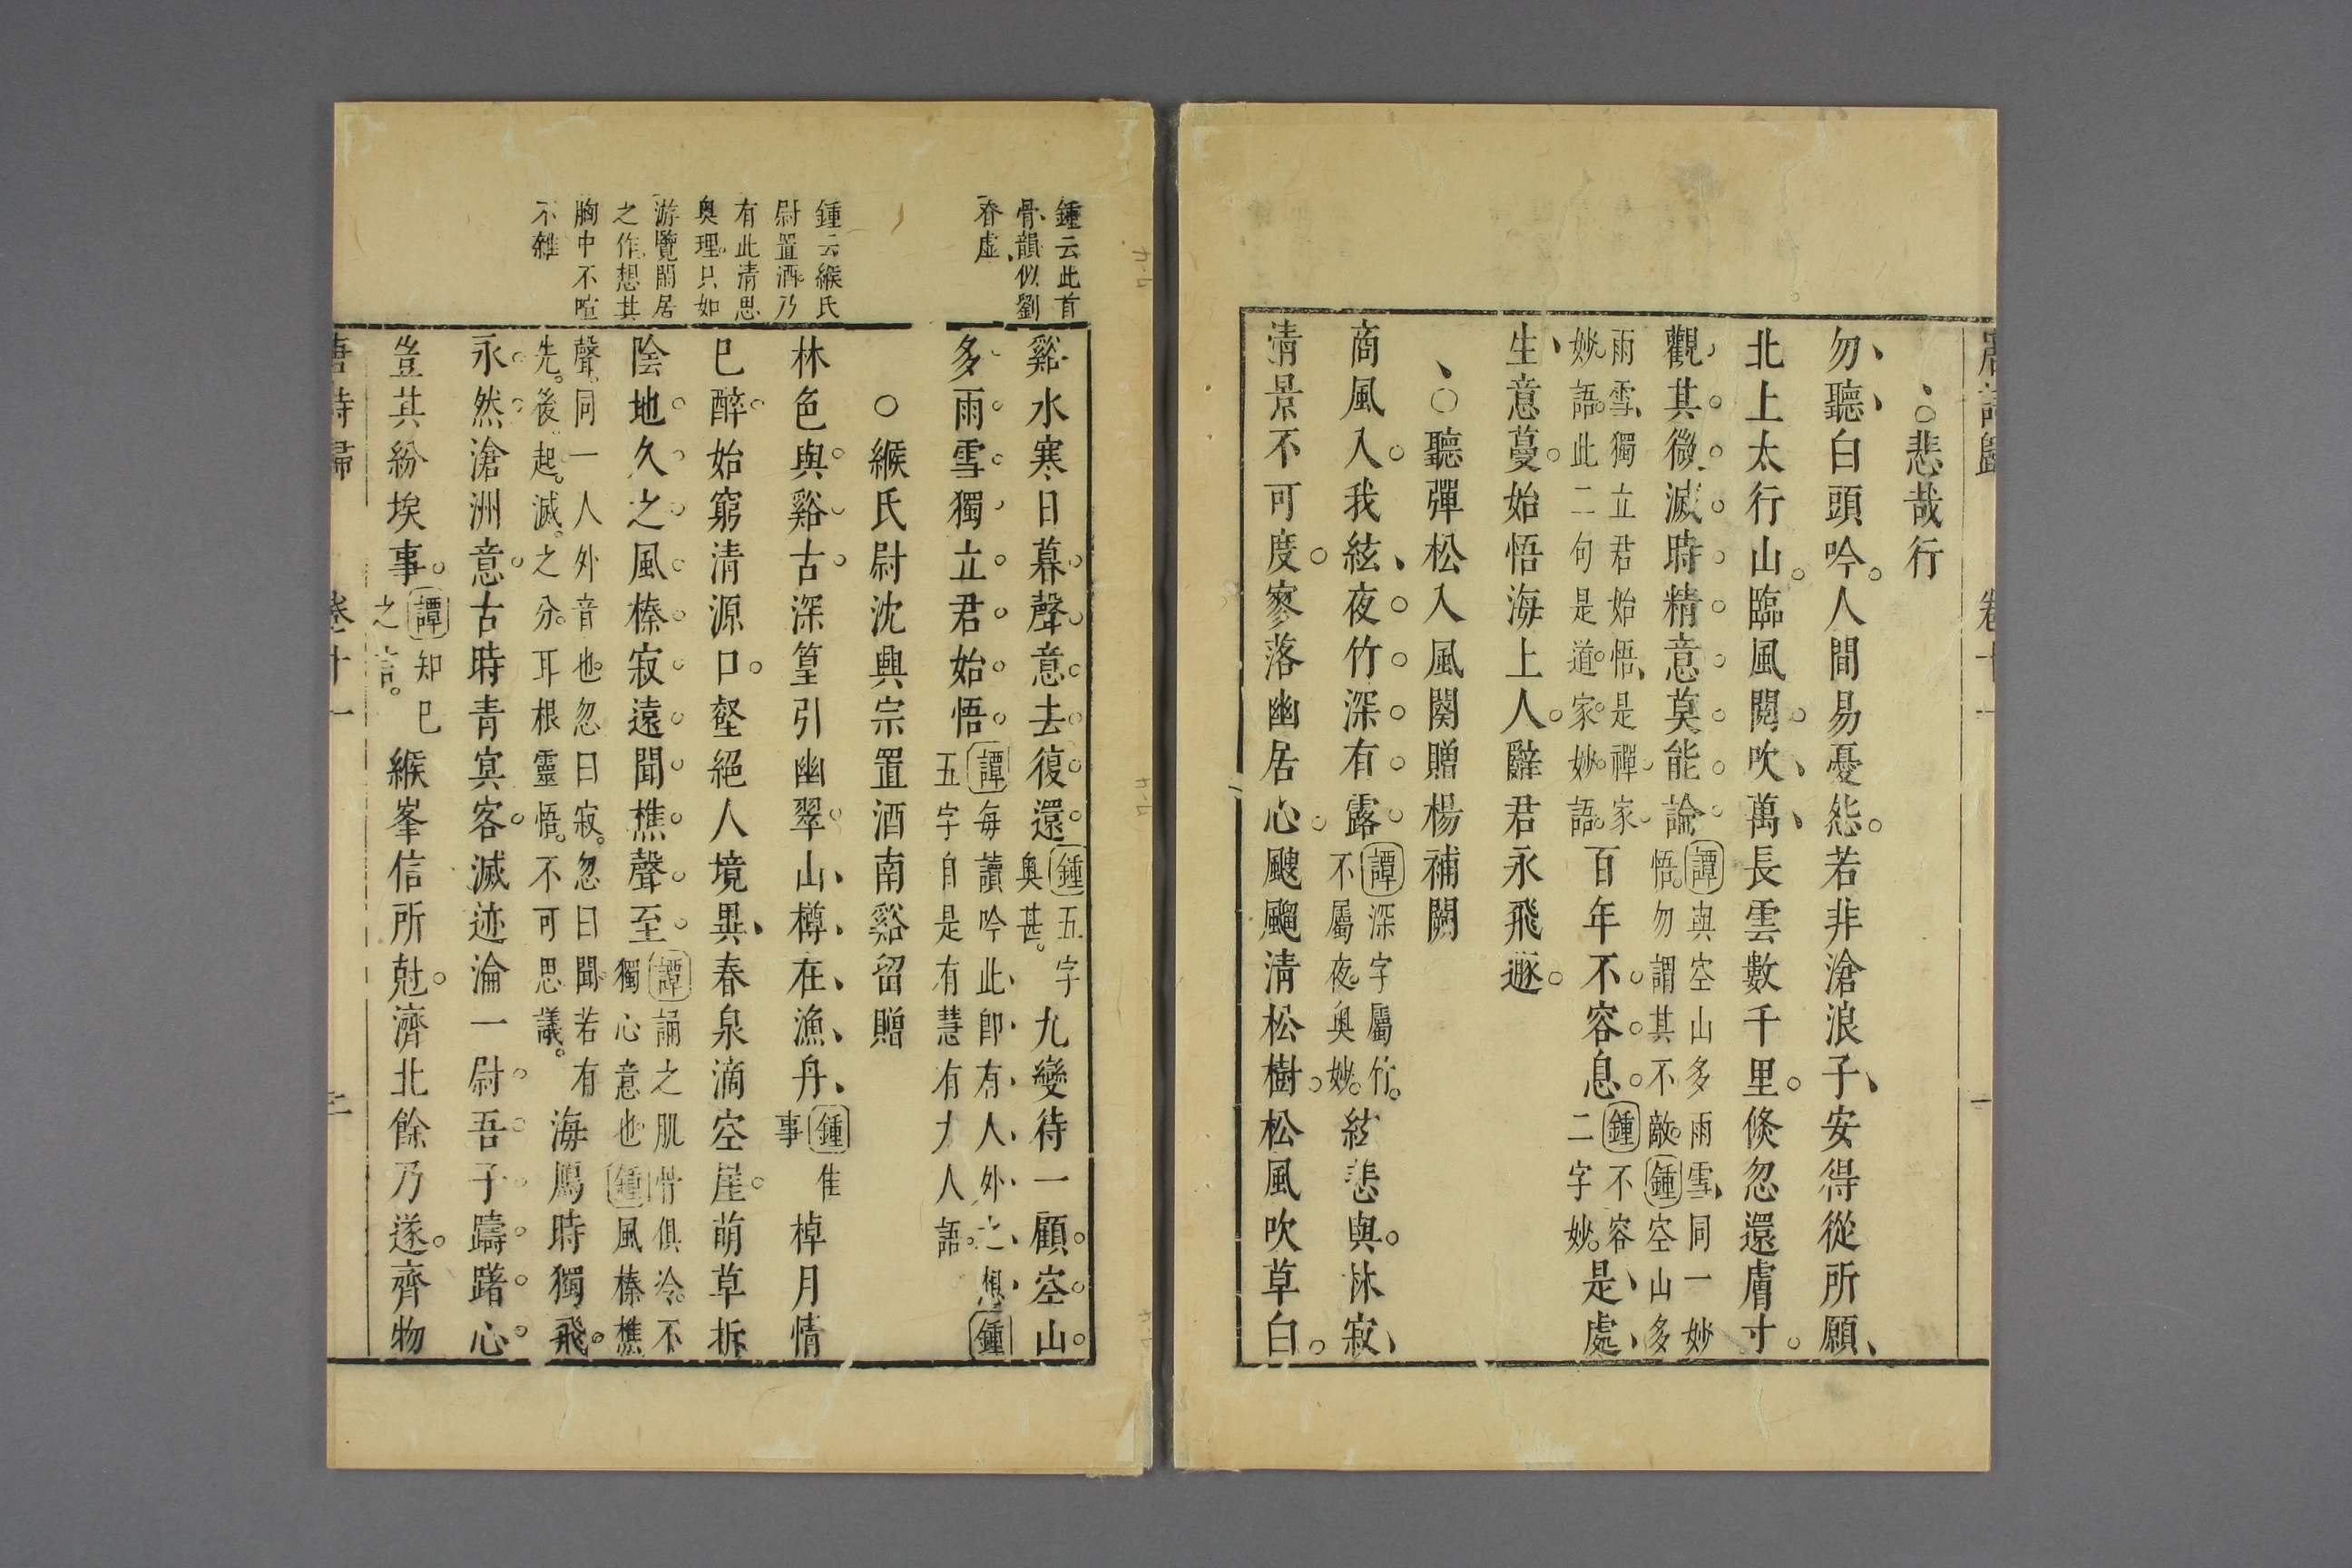 唐詩歸　卷十一　一
、○悲哉行
勿聽白頭吟。人間易憂怨。若非滄浪子、安得從所願、
北上太行山。臨風閱吹萬、長雲數千里。倏忽還膚寸。
觀其微滅時精意莫能論譚與空山多雨雪、同一妙
悟。勿謂其不敵。鍾空山多
雨雪、獨立君始悟、是禪家
妙語。此二句是道家妙語。百年不容息。鍾不容
二字妙。是處、
生意蔓。始悟海上人。辭君永飛遯。
、○聽彈松入風闋贈楊補闕
商風入。我絃、夜竹深有露譚深字屬竹。
不屬夜。奥妙。絃悲與。林寂、
清景不可度。寥落幽居心。颼飀清松樹。松風吹草白。
鍾云此首
骨韻似劉
眘虛、
谿水寒日暮聲意去復還鍾五字
奥甚。九變待一顧空山
多雨雪獨立君始悟譚每讀吟此卽有人外之想、鍾
五字自是有慧有力人語。
鍾云緱氏
尉置酒乃
有此清思
奥理只如
游覽閒居
之作想其
胸中不喧
不雜
○緱氏尉沈興宗置酒南谿留贈
林色與谿古深篁引幽翠山樽在漁丹、鍾隹
事棹月情
已醉。始窮清源口。壑絕人境異、春泉滴空崖。萌草拆
陰地久之風榛寂遠聞樵聲至譚誦之肌骨俱冷。不
獨心意也。鍾風榛樵
聲。同一人外音也。忽曰寂。忽曰聞若有
先。後起。滅。之分。耳根靈悟。不可思議。海鴈時獨飛。
永然滄洲意古時青冥客滅迹淪一尉吾子躊躇心
豈其紛埃事。譚知已
之言。緱峯信所尅。濟北餘乃遂。齊物
唐詩歸　卷十一　二